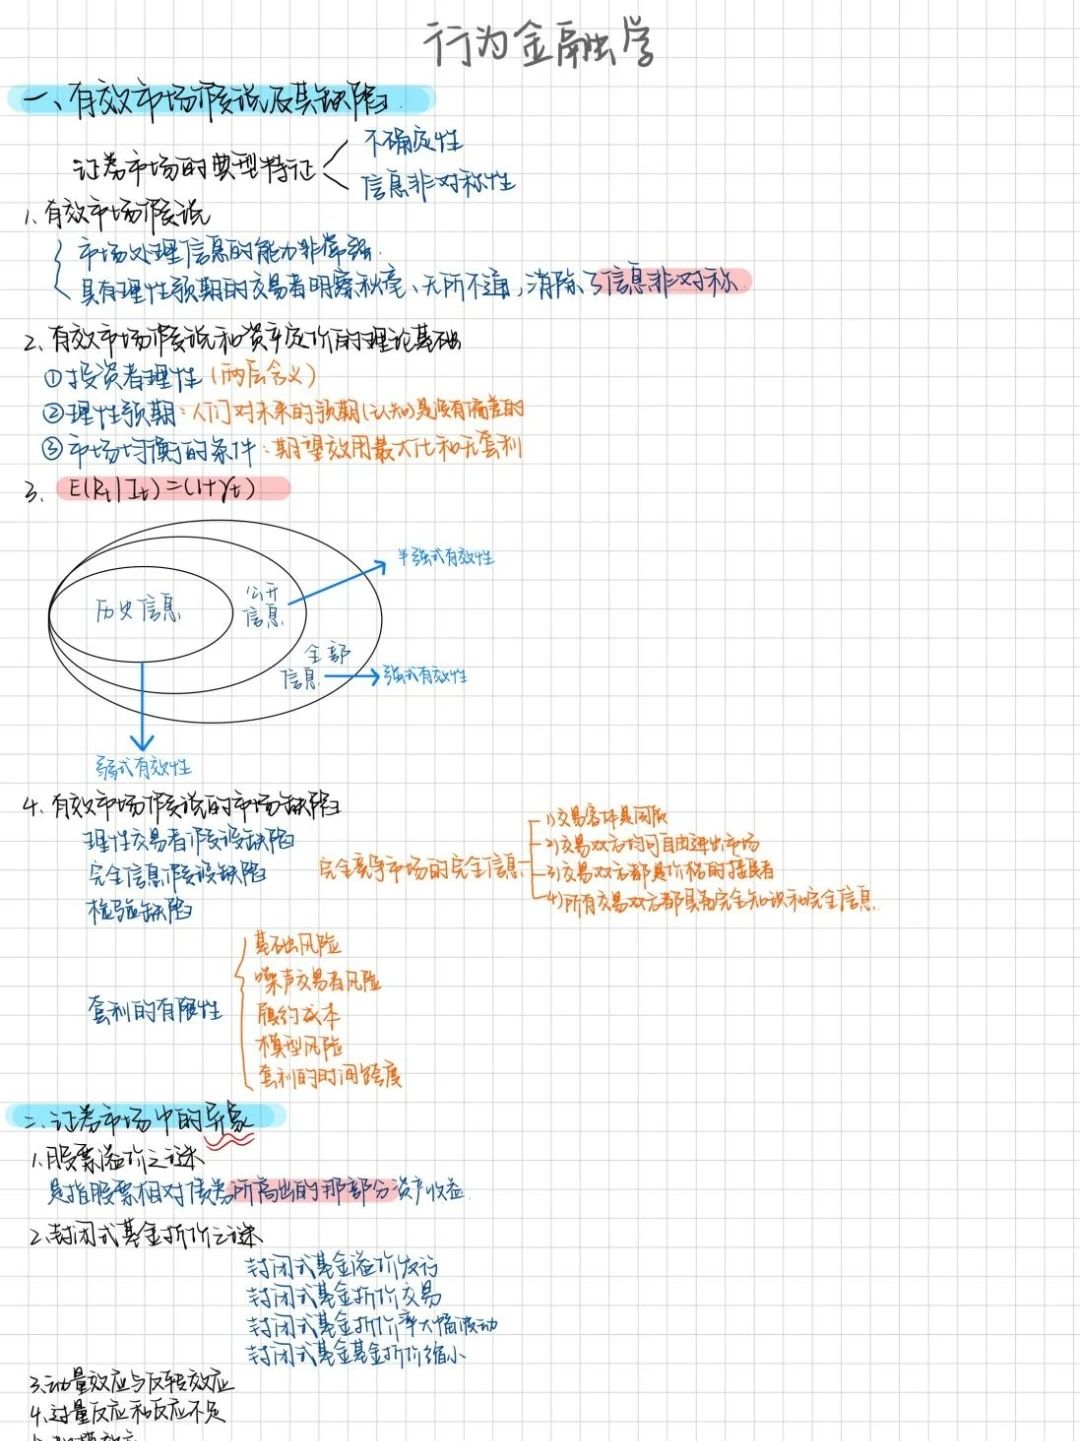 行为金融学
一、有效市场假说及其缺陷
证券市场的典型特征
不确定性
信息非对称性
1.有效市场假说
市场处理信息的能力非常强.
具有理性预期的交易者明察秋毫、无所不通,消除了信息非对称.
2、有效市场假说和资产定价的理论基础
①投资者理性(两层含义)
②理性预期:人们对未来的预期(认知)是没有偏差的
③市场均衡的条件:期望效用最大化和无套利
3. E(Rt|It)=(1+γt)
半强式有效性
历史信息
公开
信息
全部
信息
强式有效性
弱式有效性
4.有效市场假说的市场缺陷
理性交易者假设缺陷
完全信息假设缺陷
检验缺陷
完全竞争市场的完全信息
1)交易客体是同质
2)交易双方均可自由进出市场
3)交易双方都是价格的接受者
4)所有交易双方都具备完全知识和完全信息.
套利的有限性
基础风险
噪声交易者风险
履约成本
模型风险
套利的时间跨度
二.证券市场中的异象
1.股票溢价之谜
是指股票相对债券所高出的那部分资产收益.
2.封闭式基金折价之谜
封闭式基金溢价发行
封闭式基金折价交易
封闭式基金折价率大幅波动
封闭式基金基金折价缩小
3.动量效应与反转效应
4.过量反应和反应不足